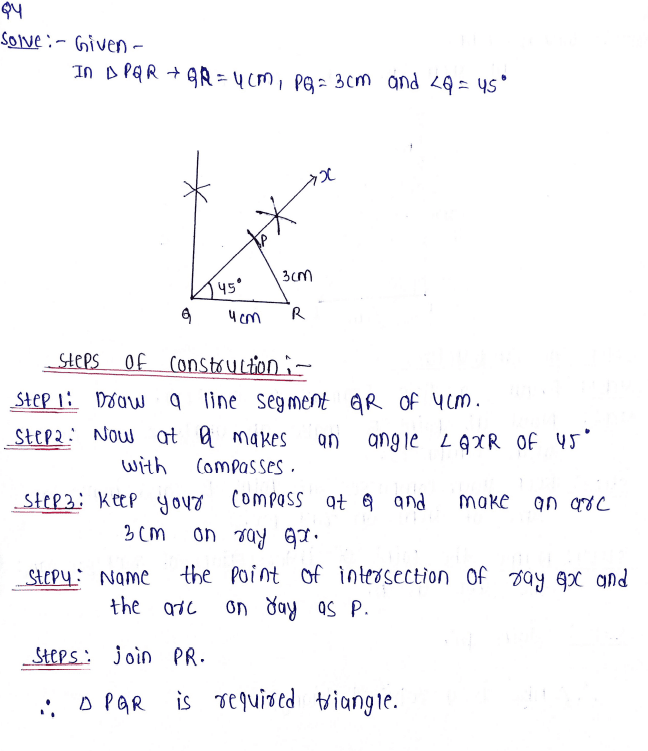 Q4
Solve :- Given -
In Δ PQR → QR = 4cm, PQ = 3cm and ∠Q = 45°
x
P
45°
3cm
Q 4cm R
Steps of construction :-
Step 1: Draw a line segment QR of 4cm.
Step2: Now at Q makes an angle ∠QXR of 45°
with compasses.
Step3: Keep your compass at Q and make an arc
3cm on ray Qx.
Step4: Name the point of intersection of ray Qx and
the arc on ray as P.
Step5: join PR.
∴ Δ PQR is required triangle.